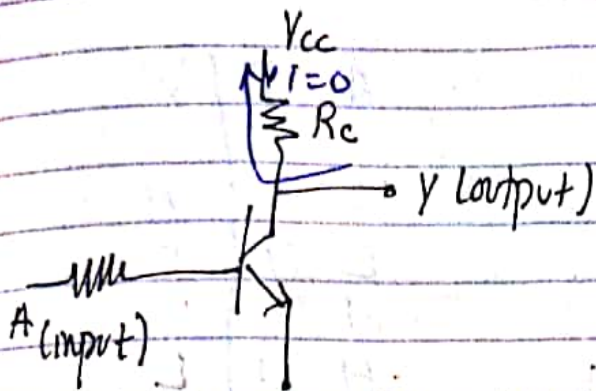 Vcc
I=0
Rc
Y (output)
A (input)